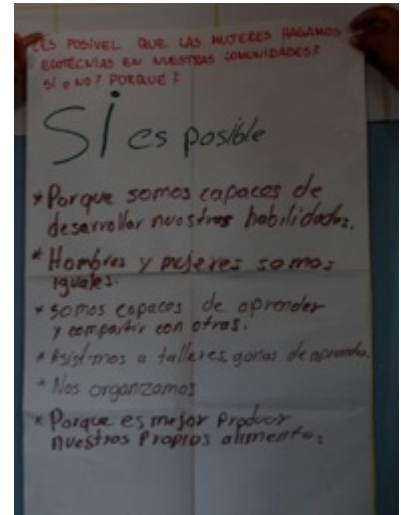 ¿ES POSIVEL QUE LAS MUJERES HAGAMOS
ECOTECNIAS EN NUESTRAS COMUNIDADES?
SÍ o NO? PORQUE?
SÍ es posible
* Porque somos capaces de
desarrollar nuestras habilidades.
* Hombres y mujeres somos
iguales.
* somos capaces de aprender
y compartir con otras.
* Asistimos a talleres, ganas de aprender.
* Nos organizamos
* Porque es mejor producir
nuestros propios alimentos